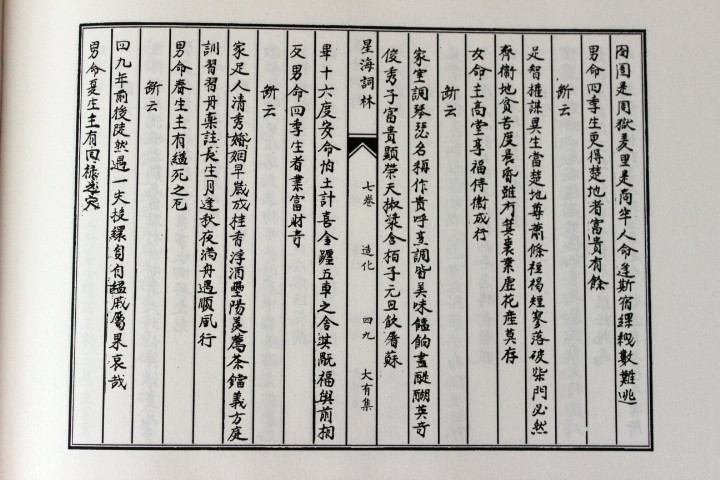 囹圄是周獄羑里是商牢人命逢斯宿縲絏數難逃
男命四季生更得楚地者富貴有餘
斷云
足智權謀異生當楚地尊蕭條裋褐短寥落破柴門必然
齊衞地貧苦度晨昏雖有箕裘業虛花產莫存
女命主高堂享福侍衞成行
斷云
家室調琴瑟名稱作貴呼烹調皆美味饈餉盡醍醐英奇
俊秀子富貴顯榮天椒漿含栢子元旦飲屠蘇
星海詞林 七卷 造化 四九 大有集
畢十六度安命怕土計喜金躔五車之舍其戩福與前相
反男命四季生者業富財奇
斷云
家足人清秀婚姻早歲成桂香浮酒壘陽羨薦茶鐺義方庭
訓習習丹藥註長生月逢秋夜滿舟遇順風行
男命春生主有縊死之厄
斷云
四九年前後陡然遇一夫棪縲自有縊戚屬哀哉
男命夏生主有回祿之灾